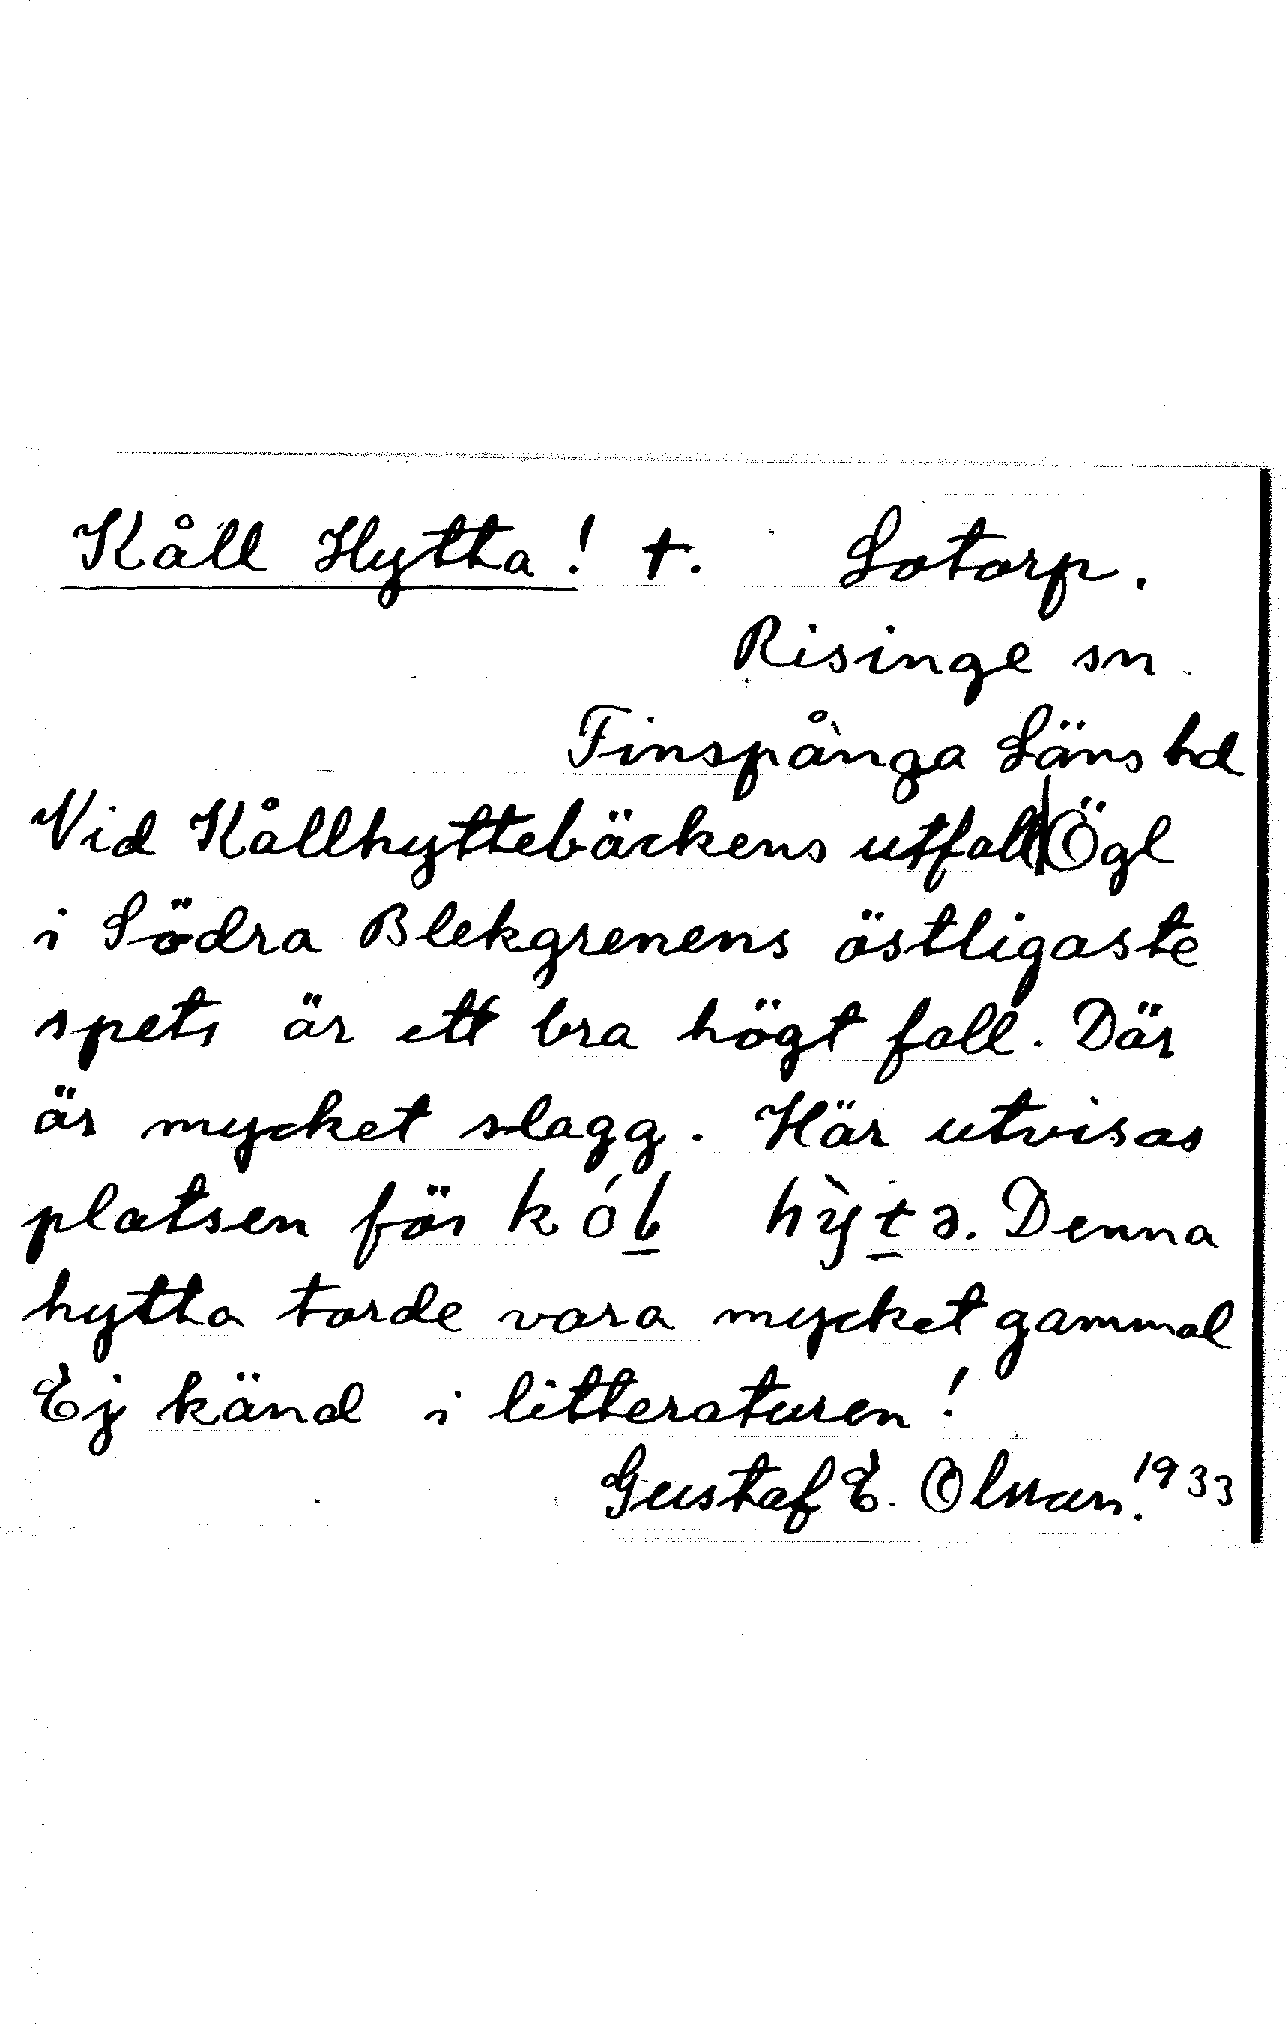 Kåll Hytta! +. Lotorp.
Risinge sn
Finspånga Läns hd
Vid Kållhyttebäckens utfall Ögl
i Södra Blekgrenens östligaste
spets är ett bra högt fall. Där
är mycket slagg. Här utvisas
platsen för hỳtə. Denna
hytta torde vara mycket gammal
Ej känd i litteraturen!
Gustaf E. 1933